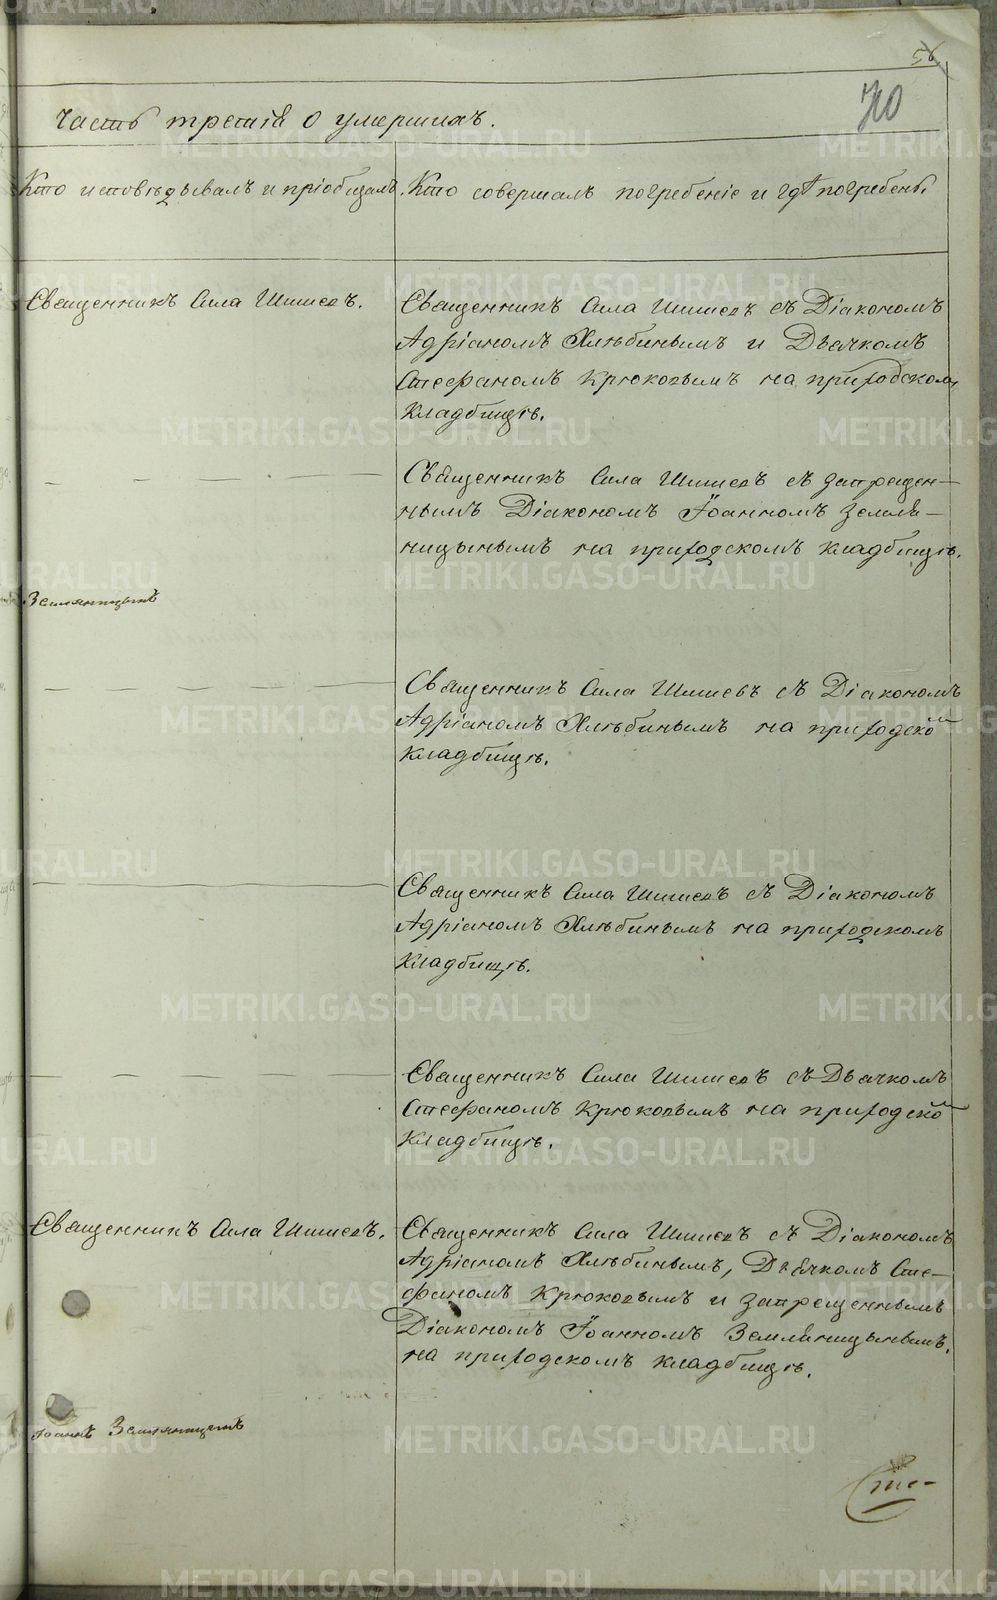 56
70
Часть третія о умершихъ.
Кто исповѣдывалъ и пріобщалъ.
Кто совершалъ погребеніе и гдѣ погребены.
Священникъ Сила Шишевъ.
Священникъ Сила Шишевъ съ Діакономъ
Адріаномъ Хлѣбинымъ и Дьячкомъ
Стефаномъ Крюковымъ на приходскомъ
кладбищѣ.
Священникъ Сила Шишевъ съ запрещен-
нымъ Діакономъ Іоанномъ Земляни-
ницынымъ на приходскомъ кладбищѣ.
Земляницынъ
Священникъ Сила Шишевъ съ Діакономъ
Адріаномъ Хлѣбинымъ на приходском
кладбищѣ.
Священникъ Сила Шишевъ съ Діакономъ
Адріаномъ Хлѣбинымъ на приходскомъ
кладбищѣ.
Священникъ Сила Шишевъ съ Дьячкомъ
Стефаномъ Крюковымъ на приходском
кладбищѣ.
Священникъ Сила Шишевъ.
Священникъ Сила Шишевъ съ Діакономъ
Адріаномъ Хлѣбинымъ, Дьячкомъ Сте-
фаномъ Крюковымъ и запрещеннымъ
Діакономъ Іоанномъ Земляницынымъ,
на приходскомъ кладбищѣ.
Іоаннъ Земляницынъ
Сте-
METRIKI.GASO-URAL.RU